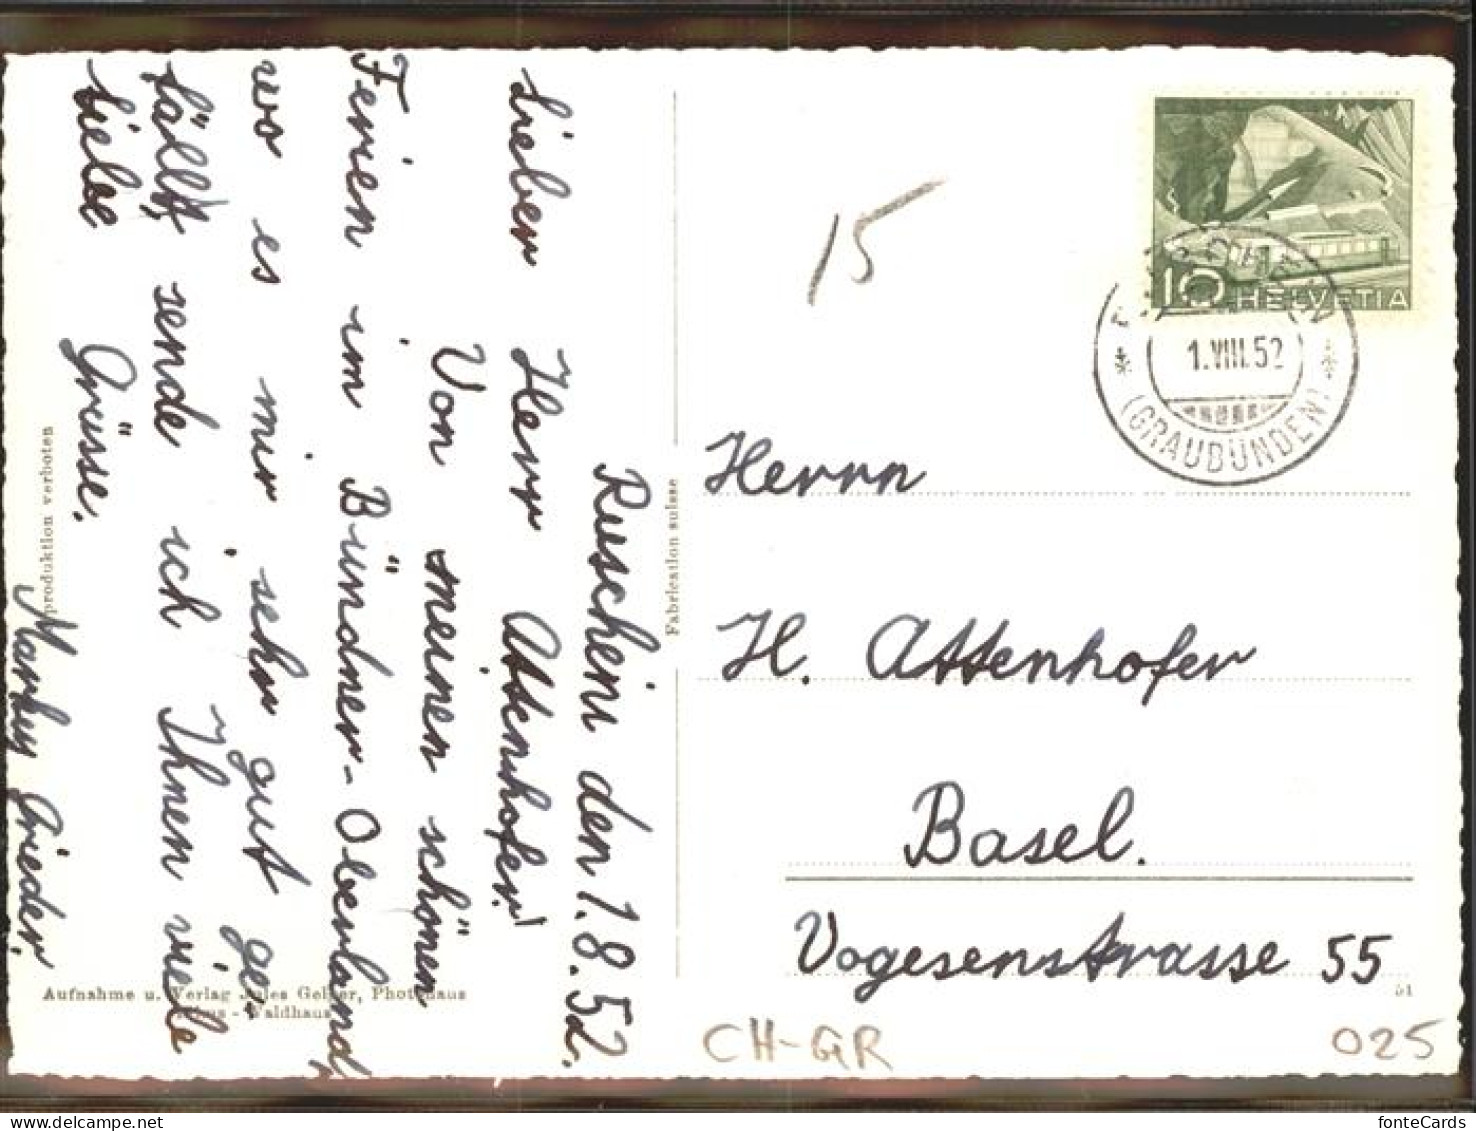 Ruschein den 1. 8. 52.
Lieber Herr Attenhofer!
Von meinen schönen
Ferien im Bündner-Oberland,
wo es mir sehr gut ge-
fällt, sende ich Ihnen viele
liebe Grüsse.
Markus Grieder.
produktion verboten
Aufnahme u. Verlag Jules Geiger, Photohaus
Flims - Waldhaus
Fabrication suisse
15
10 HELVETIA
1.VIII.52
(GRAUBÜNDEN)
Herrn
H. Attenhofer
Basel.
Vogesenstrasse 55
51
CH-GR
025
fonteCards